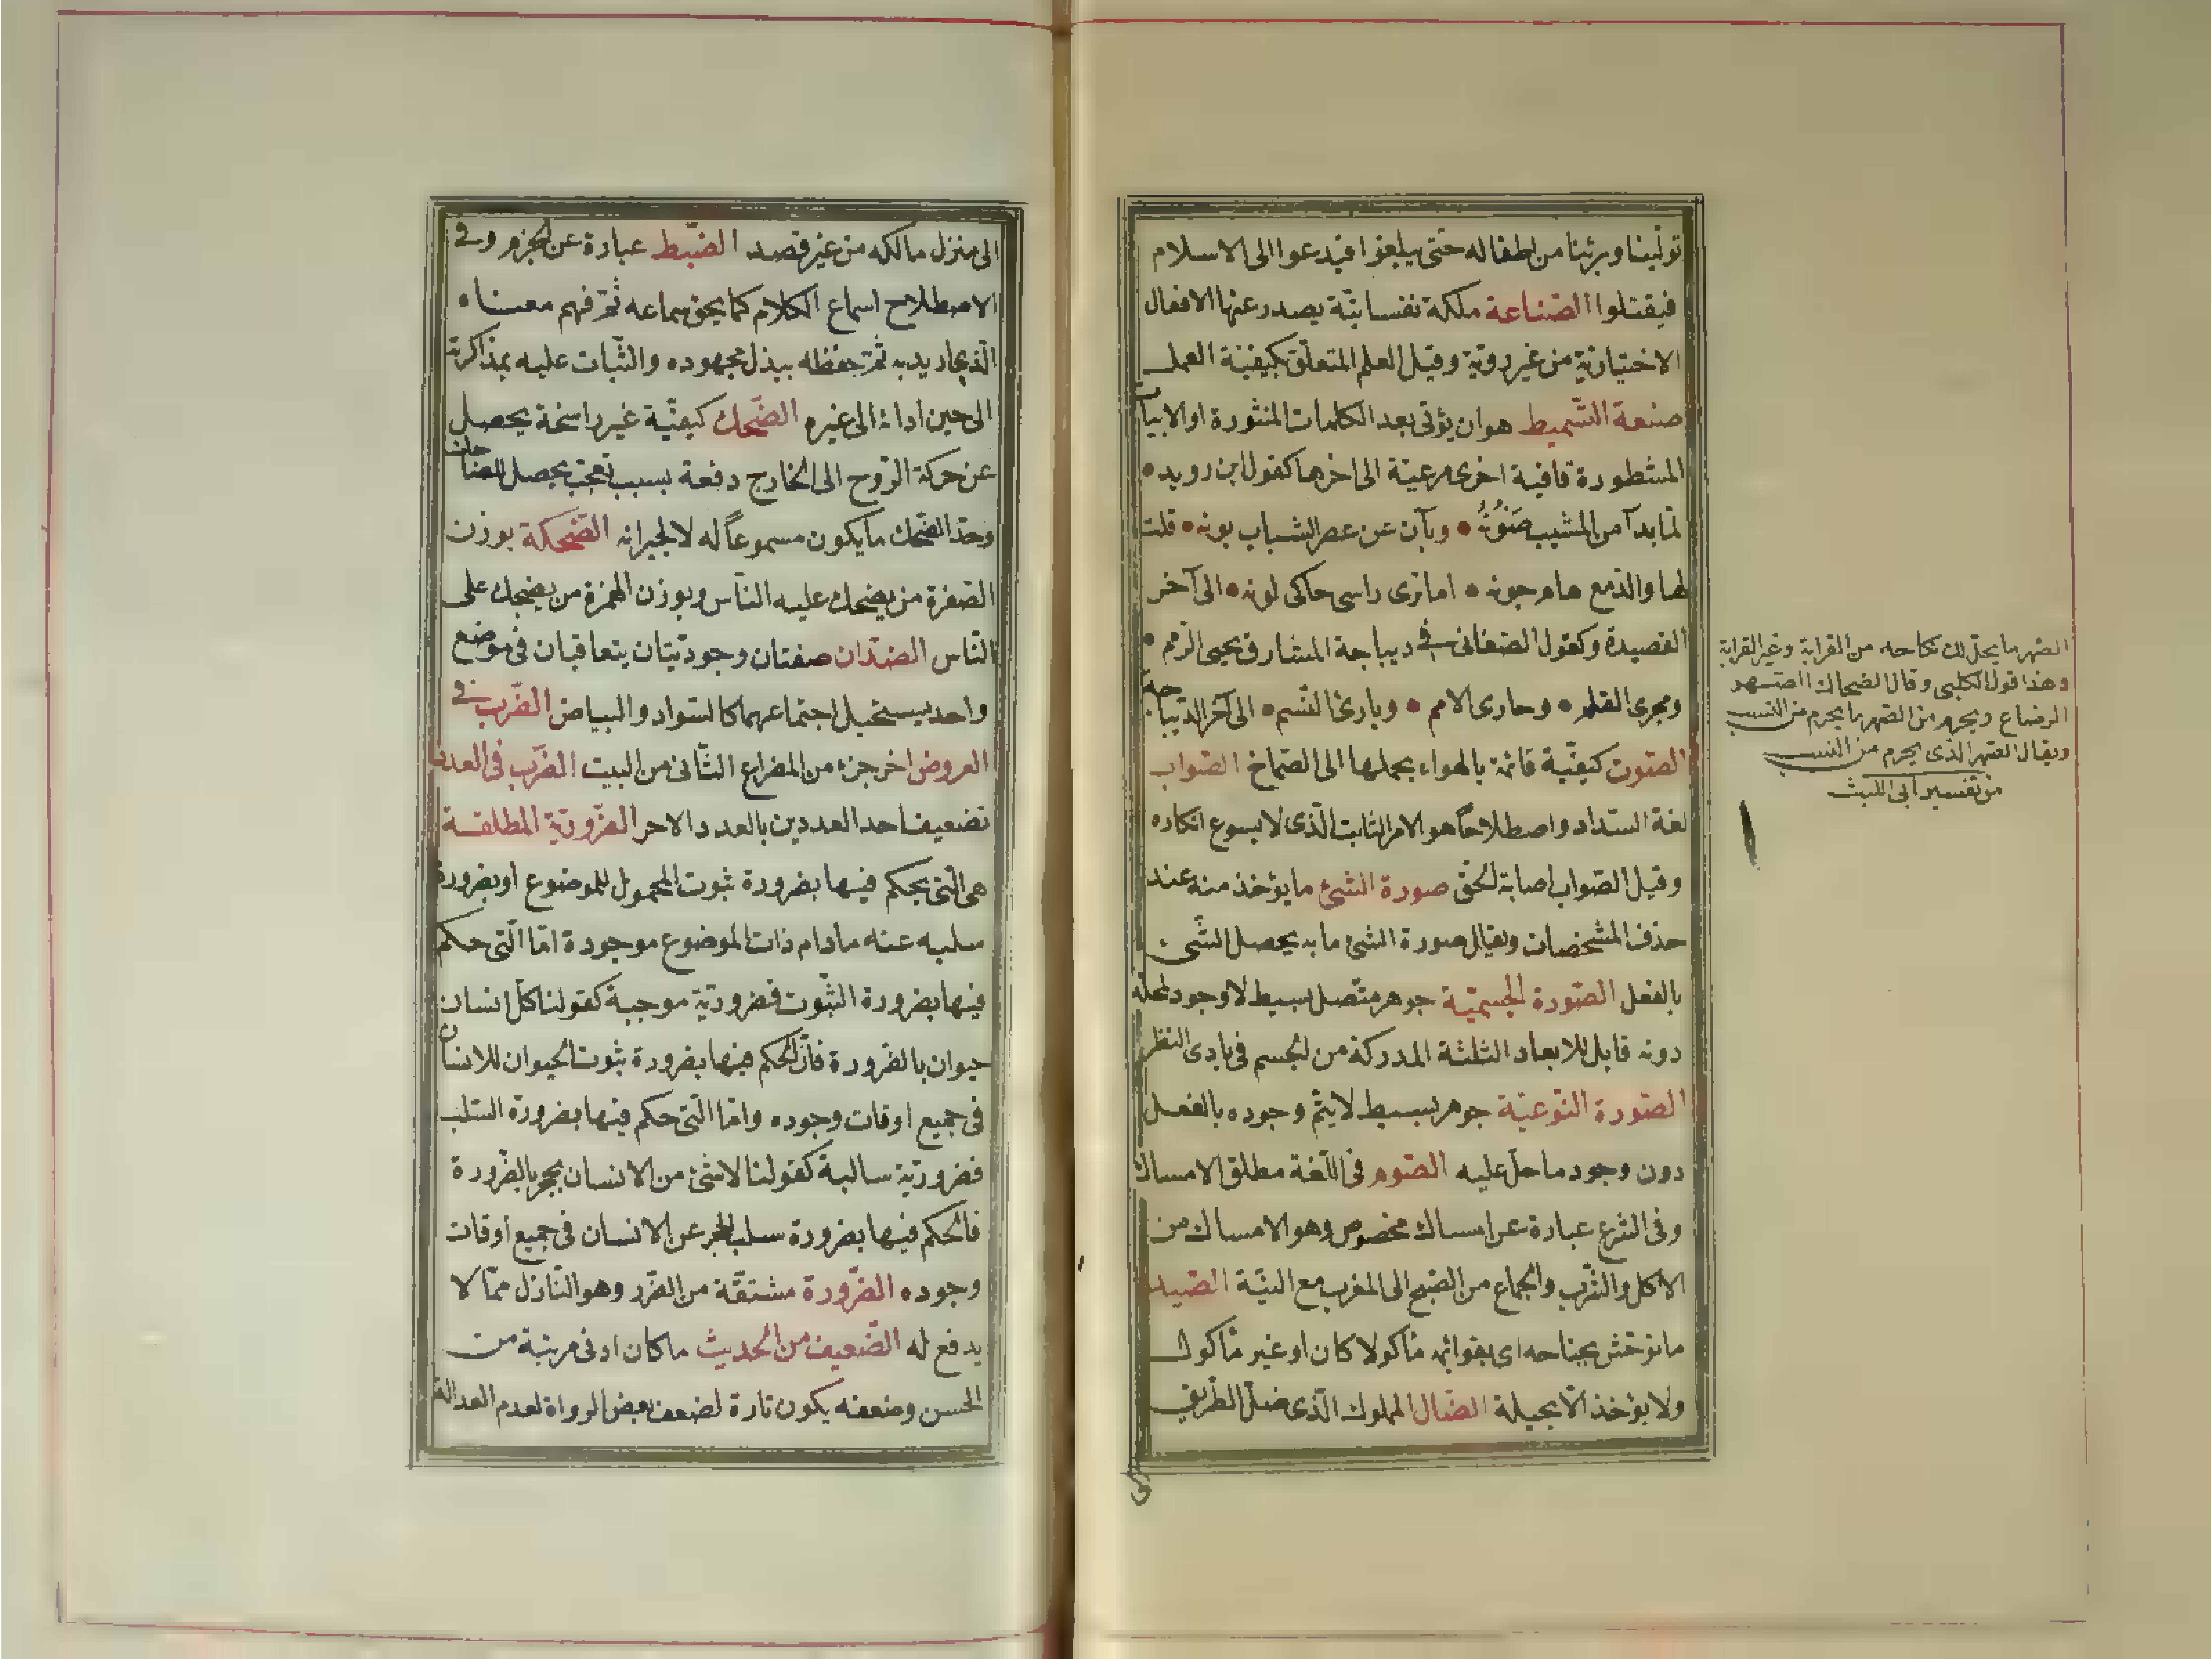 تولّينا وبرئنا من اطفاله حتى يبلغوا فيدعوا الى الاسلام
فيقتلوا الصّناعة ملكة نفسانيّة يصدر عنها الافعال
الاختياريّة من غير رويّة وقيل العلم المتعلّق بكيفيّة العمل
صنعة التّسميط هو ان يؤتى بعد الكلمات المنثورة او الابيات
المشطورة قافية اخرى مرعيّة الى اخرها كقول ابن دريد
لمّا بدا من المشيب صَوْنُهُ وبان عن عصر الشباب بونه قلت
لها والدّمع هام جونه اما ترى راسى حاكى لونه الى آخر
القصيدة وكقول الصّغانى فى ديباجة المشارق يحيى الرّمم
ومجرى القلم وحارى الامم وبارئ النّسم الى آخر الدّيباجة
الصّوت كيفيّة قائمة بالهواء يحملها الى الصّماخ الصّواب
لغة السّداد واصطلاحًا هو الامر الثابت الّذى لا يسوع انكاره
وقيل الصّواب اصابة الحقّ صورة الشئ ما يؤخذ منه عند
حذف المشخّصات ويقال صورة الشئ ما به يحصل الشّئ
بالفعل الصّورة الجسميّة جوهر متّصل بسيط لا وجود لمحلّه
دونه قابل للابعاد الثلثة المدركة من الجسم فى بادى النظر
الصّورة النّوعيّة جوهر بسيط لا يتمّ وجوده بالفعل
دون وجود ما حلّ عليه الصّوم فى اللّغة مطلق الامساك
وفى الشرع عبارة عن امساك مخصوص وهو الامساك من
الاكل والشّرب والجماع من الصّبح الى المغرب مع النيّة الصّيد
ما توحّش بجناحه اى بقوائمه مأكولا كان او غير مأكول
ولا يؤخذ الّا بحيلة الضّالّ المملوك الّذى ضلّ الطّريق
الصّهر ما يحلّ لك نكاحه من القرابة وغير القرابة
وهذا قول الكلبى وقال الضحاك الصّهر
الرضاع ويحرم من الصّهر ما يحرم من النسب
ويقال الصّهر الّذى يحرم من النسب
من تفسير ابى الليث
الى منزل مالكه من غير قصد الضّبط عبارة عن الحزم وفى
الاصطلاح اسماع الكلام كما يحقّ سماعه ثمّ فهم معناه
الّذى اريد به ثمّ حفظه ببذل مجهوده والثّبات عليه بمذاكرته
الى حين ادائه الى غيره الضّحك كيفيّة غير راسخة يحصل
عن حركة الرّوح الى الخارج دفعة بسبب تعجّب يحصل للضاحك
وحدّ الضّحك ما يكون مسموعًا له لا لجيرانه الضّحكة بوزن
الصّفرة من يضحك عليه النّاس وبوزن الهمزة من يضحك على
النّاس الضّدّان صفتان وجوديّتان يتعاقبان فى موضع
واحد يستحيل اجتماعهما كالسّواد والبياض الضّرب فى
العروض اخر جزء من المصراع الثّانى من البيت الضّرب فى العدد
تضعيف احد العددين بالعدد الاخر الضّروريّة المطلقة
هى الّتى يحكم فيها بضرورة ثبوت المحمول للموضوع او بضرورة
سلبه عنه مادام ذات الموضوع موجودة امّا الّتى حكم
فيها بضرورة الثبوت فضروريّة موجبة كقولنا كلّ انسان
حيوان بالضّرورة فانّ الحكم فيها بضرورة ثبوت الحيوان للانسان
فى جميع اوقات وجوده وامّا الّتى حكم فيها بضرورة السّلب
فضروريّة سالبة كقولنا لا شئ من الانسان بحجر بالضّرورة
فالحكم فيها بضرورة سلب الحجر عن الانسان فى جميع اوقات
وجوده الضّرورة مشتقّة من الضّرر وهو النّازل ممّا لا
يدفع له الضّعيف من الحديث ما كان ادنى مرتبة من
الحسن وضعفه يكون تارة لضعف بعض الرواة لعدم العدالة